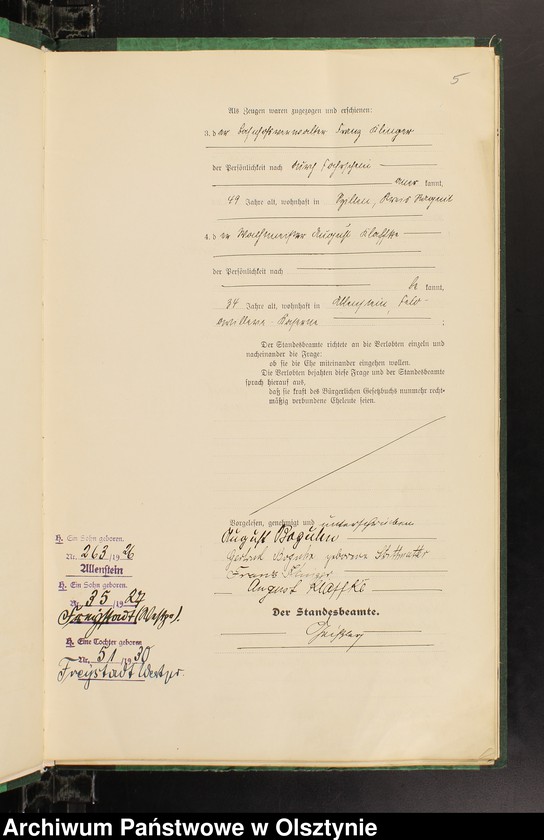 5
Als Zeugen waren zugezogen und erschienen:
3. der Bahnhofsverwalter Franz Klinger
der Persönlichkeit nach durch
aner kannt,
49 Jahre alt, wohnhaft in Kreis Ragnit
4. der Wachtmeister August Klaffke
der Persönlichkeit nach
be kannt,
34 Jahre alt, wohnhaft in Allenstein, Feld-
artillerie-Kaserne ;
Der Standesbeamte richtete an die Verlobten einzeln und
nacheinander die Frage:
ob sie die Ehe miteinander eingehen wollen.
Die Verlobten bejahten diese Frage und der Standesbeamte
sprach hierauf aus,
daß sie kraft des Bürgerlichen Gesetzbuchs nunmehr recht-
mäßig verbundene Eheleute seien.
Vorgelesen, genehmigt und unterschrieben
August
geborene
Franz Klinger
August Klaffke
Der Standesbeamte.
H. Ein Sohn geboren.
Nr. 263/1926
Allenstein
H. Ein Sohn geboren.
Nr. 35/1927
Freystadt (Westpr.)
H. Eine Tochter geboren
Nr. 51/1930
Freystadt Westpr.
Archiwum Państwowe w Olsztynie